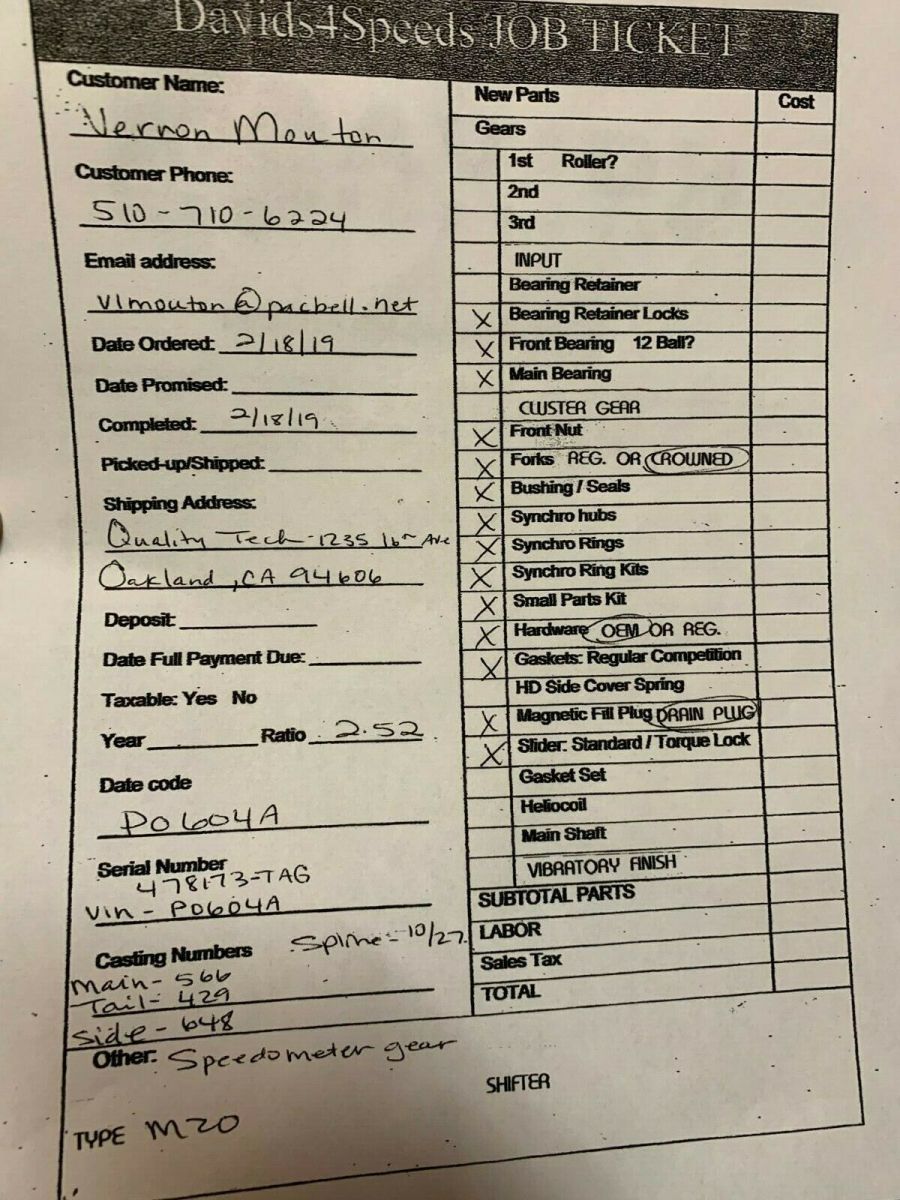 Davids4Speeds JOB TICKET
Customer Name:
Vernon Mouton
Customer Phone:
510-710-6224
Email address:
vlmouton@pacbell.net
Date Ordered: 2/18/19
Date Promised:
Completed: 2/18/19
Picked-up/Shipped:
Shipping Address:
Quality Tech - 1235 16th Ave
Oakland, CA 94606
Deposit:
Date Full Payment Due:
Taxable: Yes No
Year Ratio 2.52
Date code
P0604A
Serial Number
478173-TAG
Vin - P0604A
Casting Numbers Spline - 10/27
Main - 566
Tail - 429
Side - 648
New Parts Cost
Gears
1st Roller?
2nd
3rd
INPUT
Bearing Retainer
X Bearing Retainer Locks
X Front Bearing 12 Ball?
X Main Bearing
CLUSTER GEAR
X Front Nut
X Forks REG. OR CROWNED
X Bushing / Seals
X Synchro hubs
X Synchro Rings
X Synchro Ring Kits
X Small Parts Kit
X Hardware OEM OR REG.
X Gaskets: Regular Competition
HD Side Cover Spring
X Magnetic Fill Plug DRAIN PLUG
X Slider: Standard / Torque Lock
Gasket Set
Heliocoil
Main Shaft
VIBRATORY FINISH
SUBTOTAL PARTS
LABOR
Sales Tax
TOTAL
Other: Speedometer gear
SHIFTER
TYPE M20